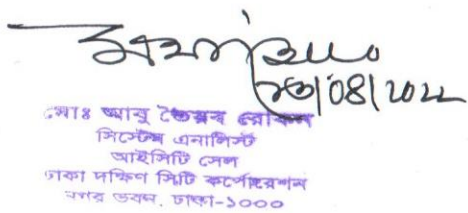 /08/2022
মোঃ আবু তৈয়ব রোকন
সিস্টেম এনালিস্ট
আইসিটি সেল
ঢাকা দক্ষিণ সিটি কর্পোরেশন
নগর ভবন, ঢাকা-১০০০